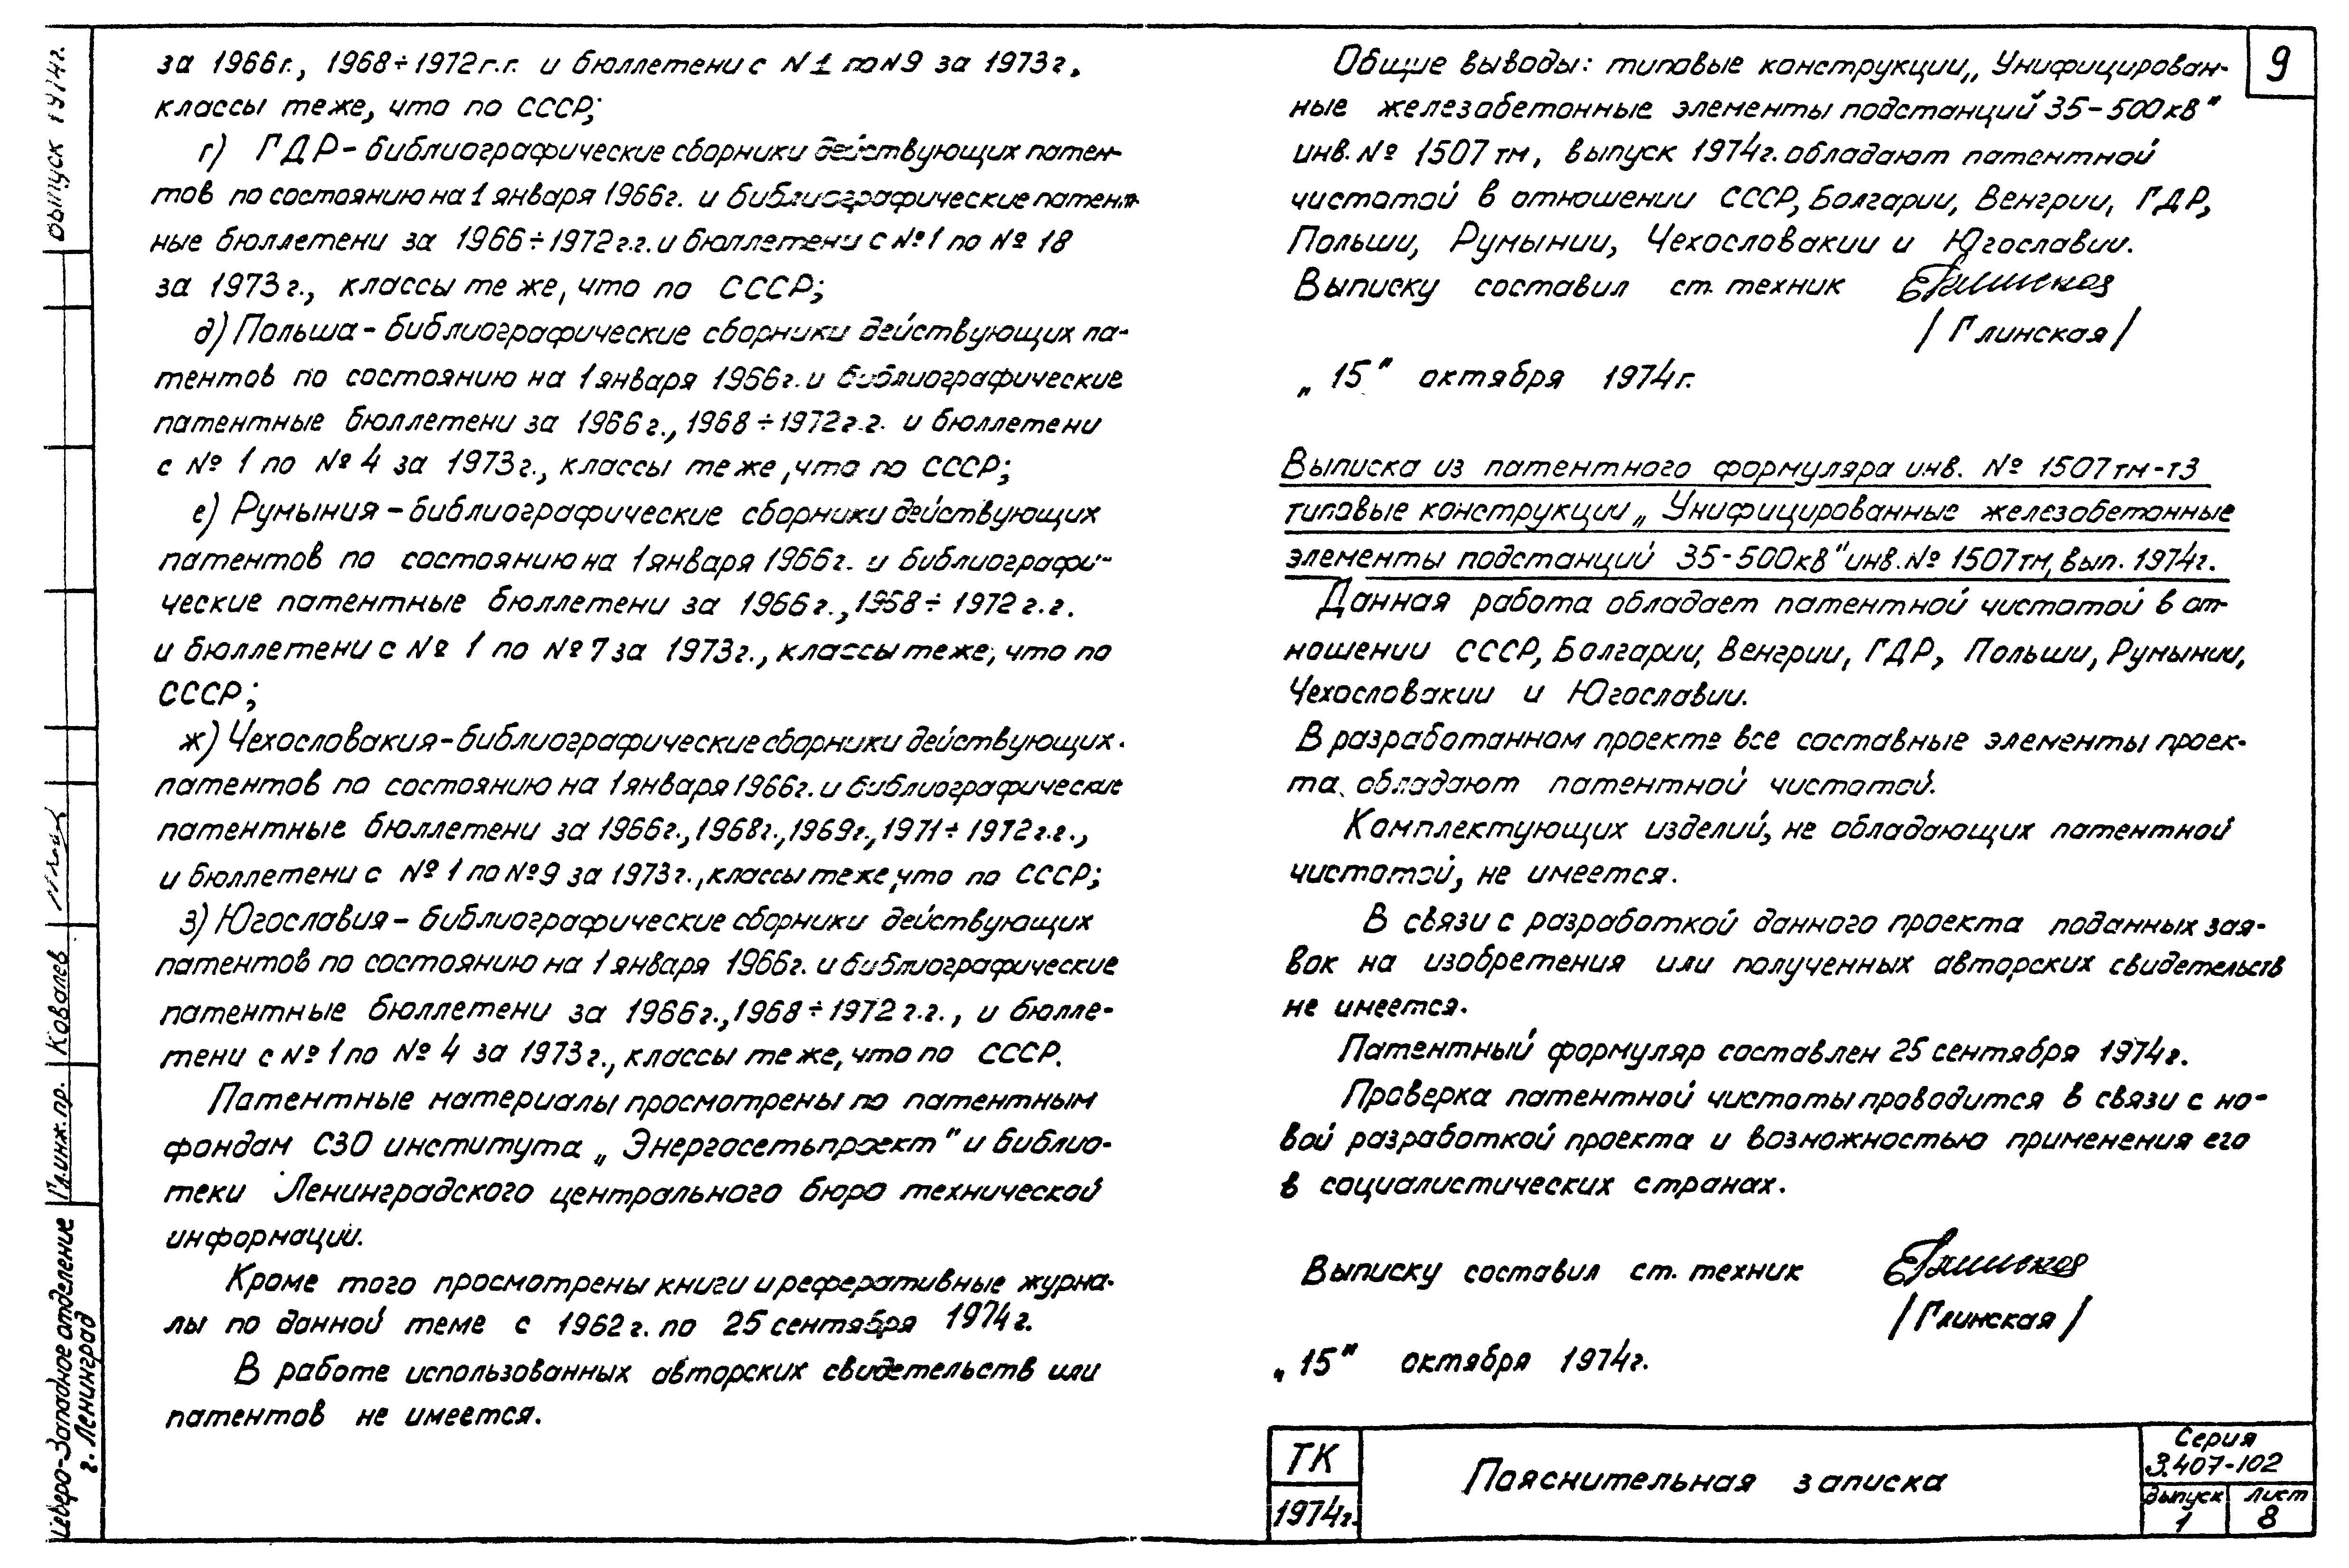 за 1966г., 1968÷1972г.г. и бюллетени с N 1 по N9 за 1973г.
классы те же, что по СССР;
г) ГДР - библиографические сборники действующих патен-
тов по состоянию на 1 января 1966г. и библиографические патент-
ные бюллетени за 1966÷1972г.г. и бюллетени с №1 по № 18
за 1973г., классы те же, что по СССР;
д) Польша - библиографические сборники действующих па-
тентов по состоянию на 1 января 1966г. и библиографические
патентные бюллетени за 1966г., 1968÷1972г.г. и бюллетени
с № 1 по № 4 за 1973г., классы те же, что по СССР;
е) Румыния - библиографические сборники действующих
патентов по состоянию на 1 января 1966г. и библиографи-
ческие патентные бюллетени за 1966г., 1968÷1972г.г.
и бюллетени с № 1 по №7 за 1973г., классы те же, что по
СССР;
ж) Чехословакия - библиографические сборники действующих
патентов по состоянию на 1 января 1966г. и библиографические
патентные бюллетени за 1966г., 1968г., 1969г., 1971÷1972г.г.,
и бюллетени с № 1 по №9 за 1973г., классы те же, что по СССР;
з) Югославия - библиографические сборники действующих
патентов по состоянию на 1 января 1966г. и библиографические
патентные бюллетени за 1966г., 1968÷1972г.г., и бюлле-
тени с № 1 по № 4 за 1973г., классы те же, что по СССР.
Патентные материалы просмотрены по патентным
фондам СЗО института „Энергосетьпроект" и библио-
теки Ленинградского центрального бюро технической
информации.
Кроме того просмотрены книги и реферативные журна-
лы по данной теме с 1962г. по 25 сентября 1974г.
В работе использованных авторских свидетельств или
патентов не имеется.
9
Общие выводы: типовые конструкции „Унифицирован-
ные железобетонные элементы подстанций 35-500кв"
инв.№ 1507тм, выпуск 1974г. обладают патентной
чистотой в отношении СССР, Болгарии, Венгрии, ГДР,
Польши, Румынии, Чехословакии и Югославии.
Выписку составил ст. техник
/Глинская/
„15" октября 1974г.
Выписка из патентного формуляра инв. № 1507тм-т3
типовые конструкции „Унифицированные железобетонные
элементы подстанций 35-500кв" инв.№ 1507тм, вып. 1974г.
Данная работа обладает патентной чистотой в от-
ношении СССР, Болгарии, Венгрии, ГДР, Польши, Румынии,
Чехословакии и Югославии.
В разработанном проекте все составные элементы проек-
та обладают патентной чистотой.
Комплектующих изделий, не обладающих патентной
чистотой, не имеется.
В связи с разработкой данного проекта поданных зая-
вок на изобретения или полученных авторских свидетельств
не имеется.
Патентный формуляр составлен 25 сентября 1974г.
Проверка патентной чистоты проводится в связи с но-
вой разработкой проекта и возможностью применения его
в социалистических странах.
Выписку составил ст. техник
/Глинская/
„15" октября 1974г.
ТК
1974г.
Пояснительная записка
Серия
3.407-102
Выпуск
1
Лист
8
выпуск 1974г.
Гл.инж.пр. Ковалев
Северо-Западное отделение
г. Ленинград